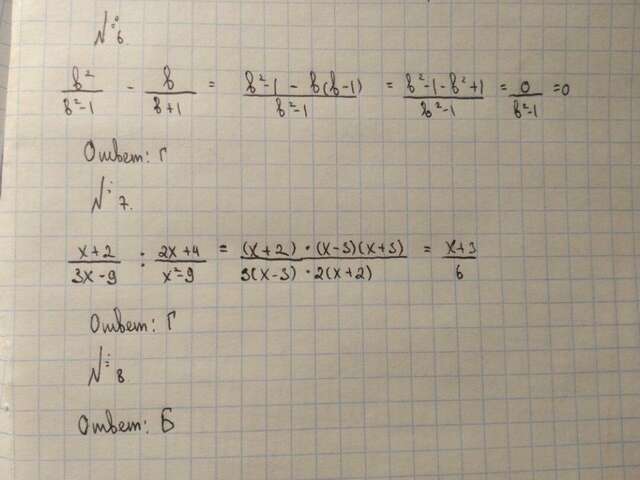 №6.
b²/(b²-1) - b/(b+1) = (b²-1 - b(b-1))/(b²-1) = (b²-1-b²+1)/(b²-1) = 0/(b²-1) =0
Ответ: Г
№7.
(x+2)/(3x-9) : (2x+4)/(x²-9) = ((x+2)·(x-3)(x+3))/(3(x-3)·2(x+2)) = (x+3)/6
Ответ: Г
№8.
Ответ: Б